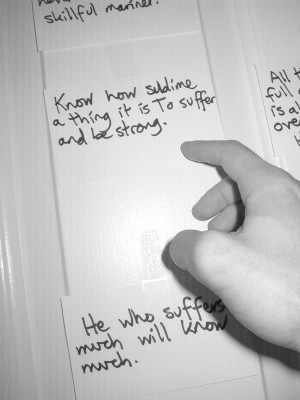 skillful manner.
Know how sublime
a thing it is To suffer
and be strong.
All
full
is a
ove
He who suffers
much will know
much.